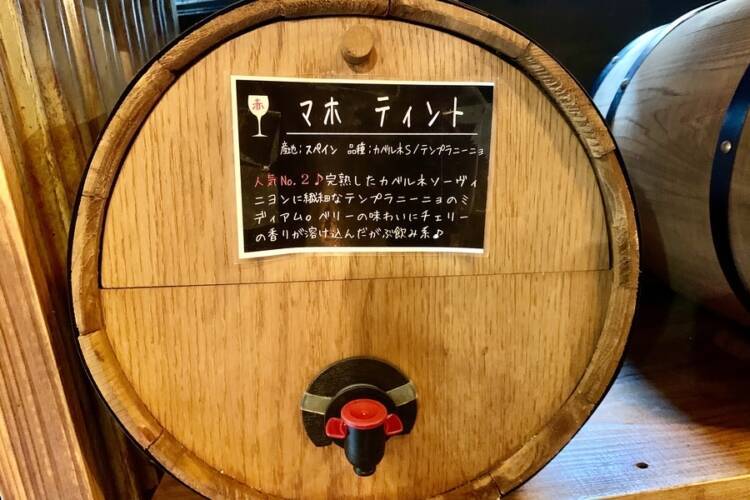 赤
マホ ティント
産地:スペイン 品種:カベルネS/テンプラニーニョ
人気No.2♪完熟したカベルネソーヴィ
ニヨンに繊細なテンプラニーニョのミ
ディアム。ベリーの味わいにチェリー
の香りが溶け込んだがぶ飲み系♪